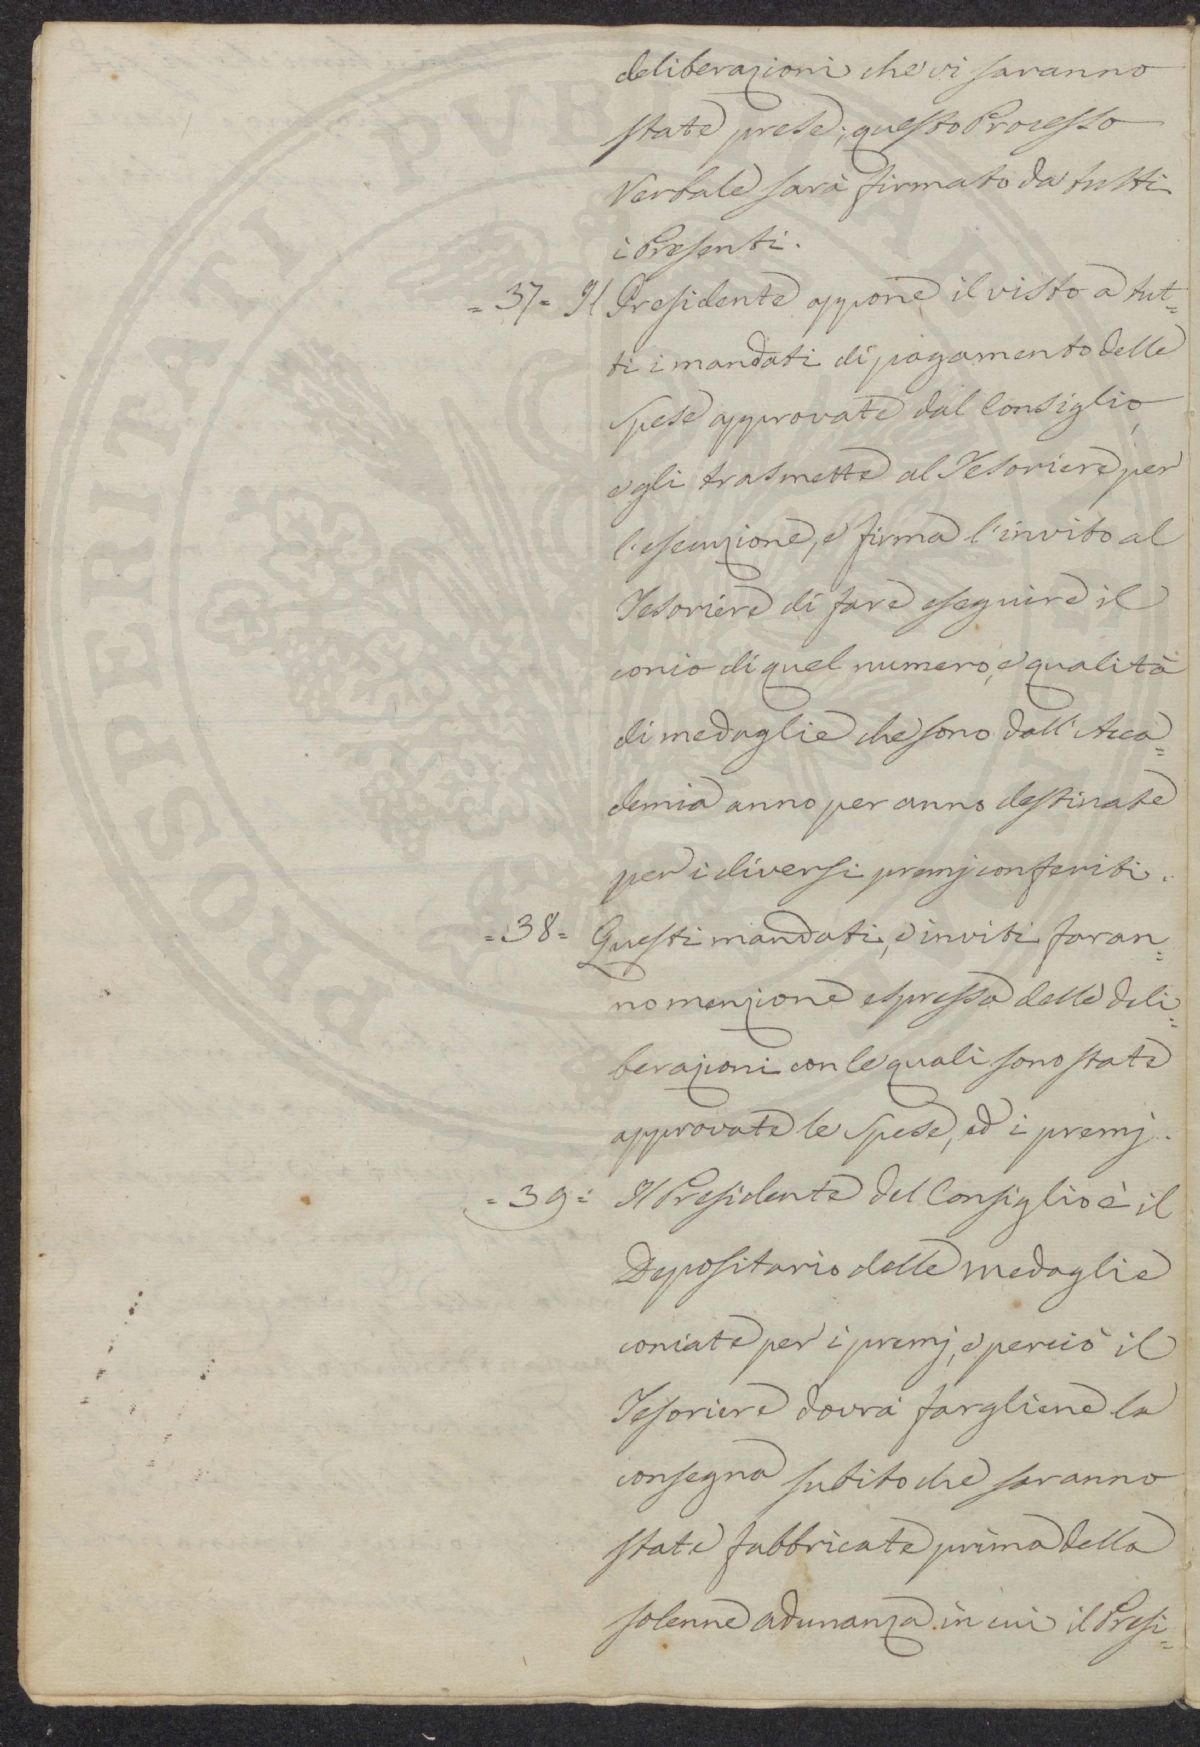 deliberazioni che vi saranno
state prese; questo Processo
Verbale sarà firmato da tutti
i Presenti.
=37= Il Presidente appone il visto a tut=
ti i mandati di pagamento delle
spese approvate dal Consiglio,
e gli trasmette al Tesoriere per
l'esecuzione, e firma l'invito al
Tesoriere di fare eseguire il
conio di quel numero, e qualità
di medaglie che sono dall'Acca=
demia anno per anno destinate
per i diversi premj conferiti.
=38= Questi mandati, e inviti faran=
no menzione espressa delle deli=
berazioni con le quali sono state
approvate le spese, ed i premj.
=39= Il Presidente del Consiglio è il
Depositario delle medaglie
coniate per i premj, e perciò il
Tesoriere dovrà fargliene la
consegna subito che saranno
state fabbricate prima della
solenne adunanza in cui il Presi=
PROSPERITATI PVBLICAE